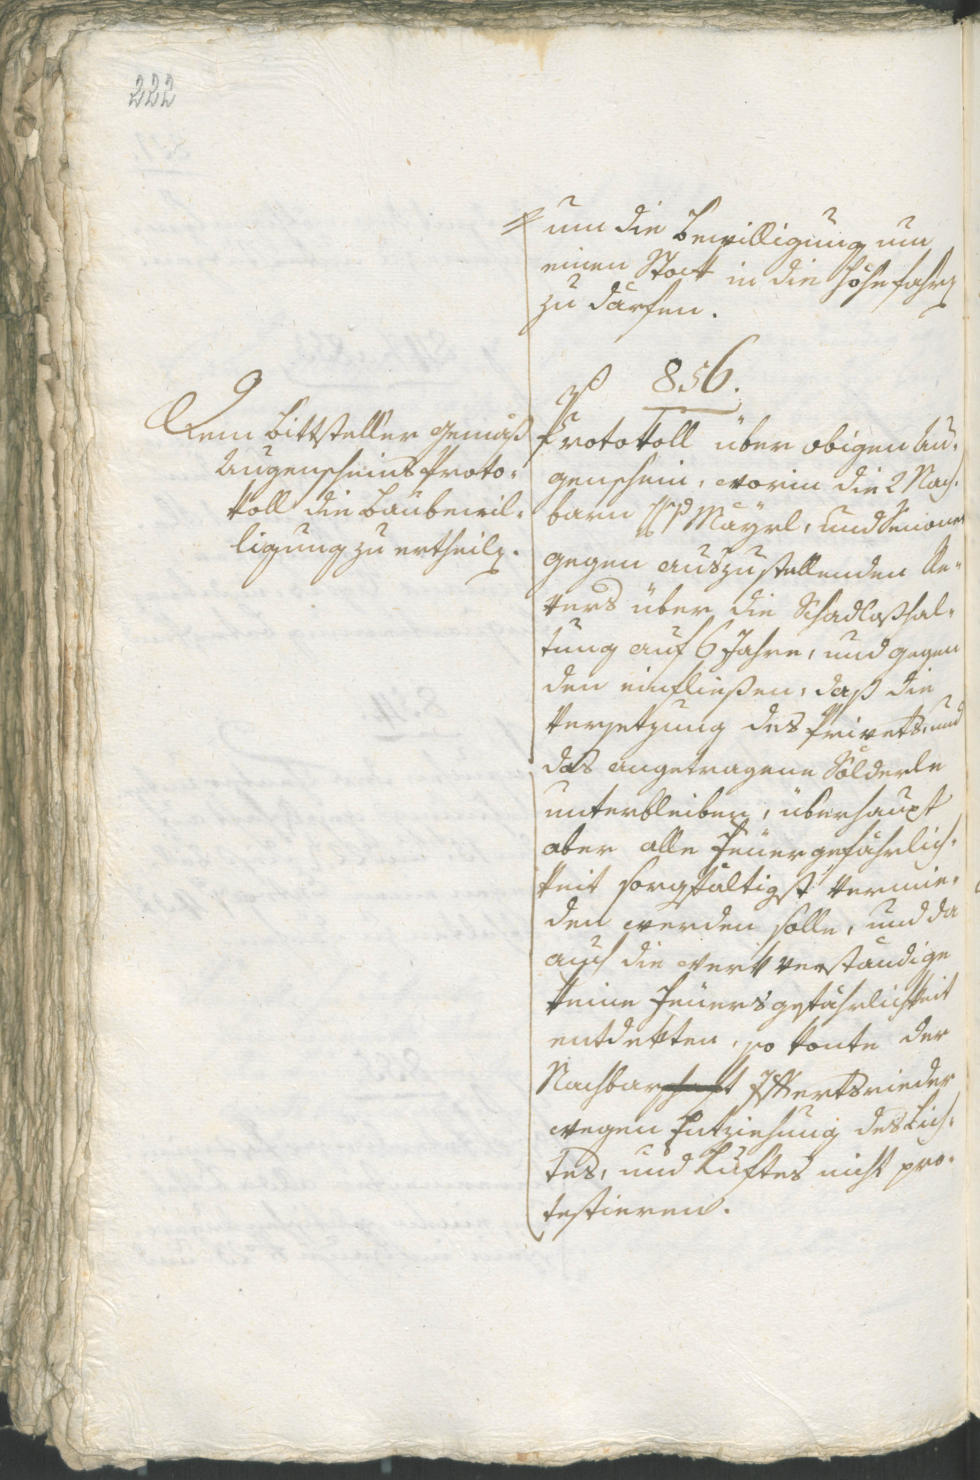 222
um die Bewilligung um
einen Stock in die Höhe fahren
zu dürfen.
856.
Dem Bittsteller gemäß
Augenscheins Proto-
koll die Baubewil-
ligung zu ertheilen.
Protokoll über obigen Au-
genschein, worin die 2 Nach-
barn Mayrl, und Simone
gegen auszustellenden Re-
vers über die Schadloßhal-
tung auf 6 Jahre, und gegen
den einfließen, daß die
Versetzung des Privets, und
das angetragene Sölderle
unterbleiben, überhaupt
aber alle Feüergefährlich-
keit sorgfältigst vermie-
den werden solle, und da
auch die werkverständige
keine Feüersgefährlichkeit
entdekten, so konte der
Nachbar
wegen Entziehung des Lich-
tes, und Luftes nicht pro-
testieren.